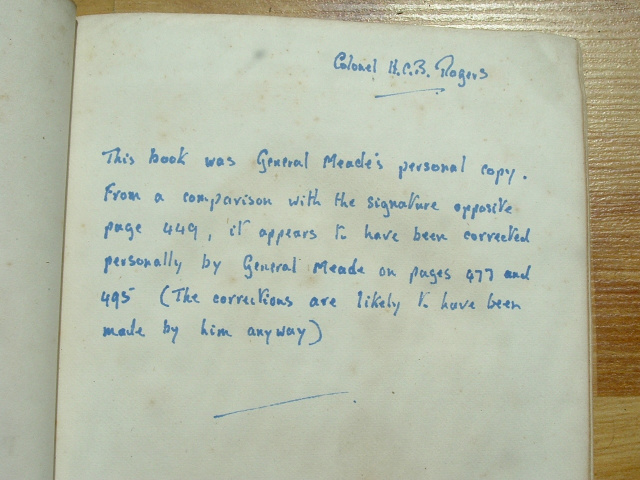 Colonel H.C.B. Rogers
This book was General Meade's personal copy.
From a comparison with the signature opposite
page 449, it appears to have been corrected
personally by General Meade on pages 477 and
495 (The corrections are likely to have been
made by him anyway)